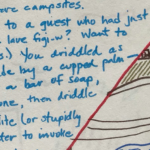 ore campsites.
to a guest who had just
love figi-w? Want to
s.) You driddled as
de by a cupped palm
a bar of soap,
one, then driddle
lite (or stupidly
ter to invoke